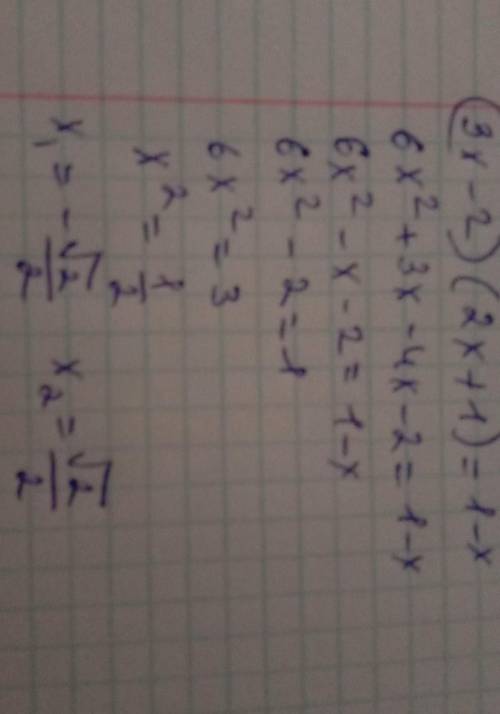 (3x-2)(2x+1)=1-x
6x²+3x-4x-2=1-x
6x²-x-2=1-x
6x²-2=1
6x²=3
x²=1/2
x₁=-√2/2 x₂=√2/2